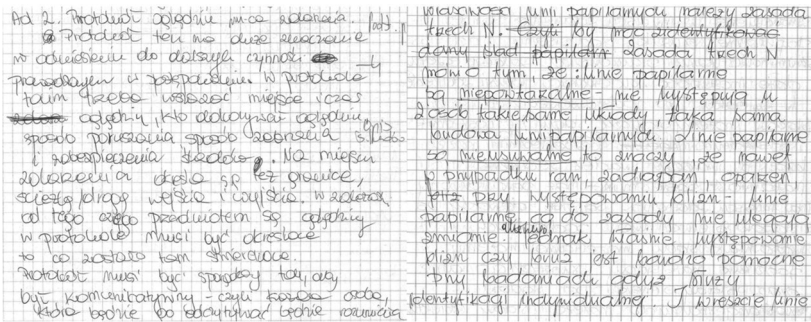 Ad 2. Protokół oględzin miejsca zdarzenia.
Protokół ten ma duże znaczenie
w odniesieniu do dalszych czynności
prowadzonych w postępowaniu. W protokole
takim trzeba wskazać miejsce i czas
oględzin, kto dokonywał oględzin,
sposób poruszania, sposób zebrania
i zabezpieczenia śladów. Na miejscu
zdarzenia określa się też granice,
ścieżkę/drogę wejścia i wyjścia. W
od tego czego przedmiotem są oględziny
w protokole musi być określone
to co zostało tam stwierdzone.
Protokół musi być sporządzony tak, aby
był komunikatywny - czyli każda osoba,
która będzie go odczytywać będzie rozumiała
właściwości linii papilarnych należy zasada
trzech N. Czyli by móc zidentyfikować
dany ślad papilarn zasada trzech N
mówi o tym, że: linie papilarne
są niepowtarzalne - nie występują u
2 osób takie same układy, taka sama
budowa linii papilarnych. Linie papilarne
są nieusuwalne to znaczy, że nawet
w przypadku ran, zadrapań, oparzeń
przy występowaniu blizn - linie
papilarne co do zasady nie ulegają
zmianie. Jednak właśnie występowanie
blizn czy bruzd jest bardzo pomocne
przy badaniach gdyż służy
identyfikacji indywidualnej. I wreszcie linie